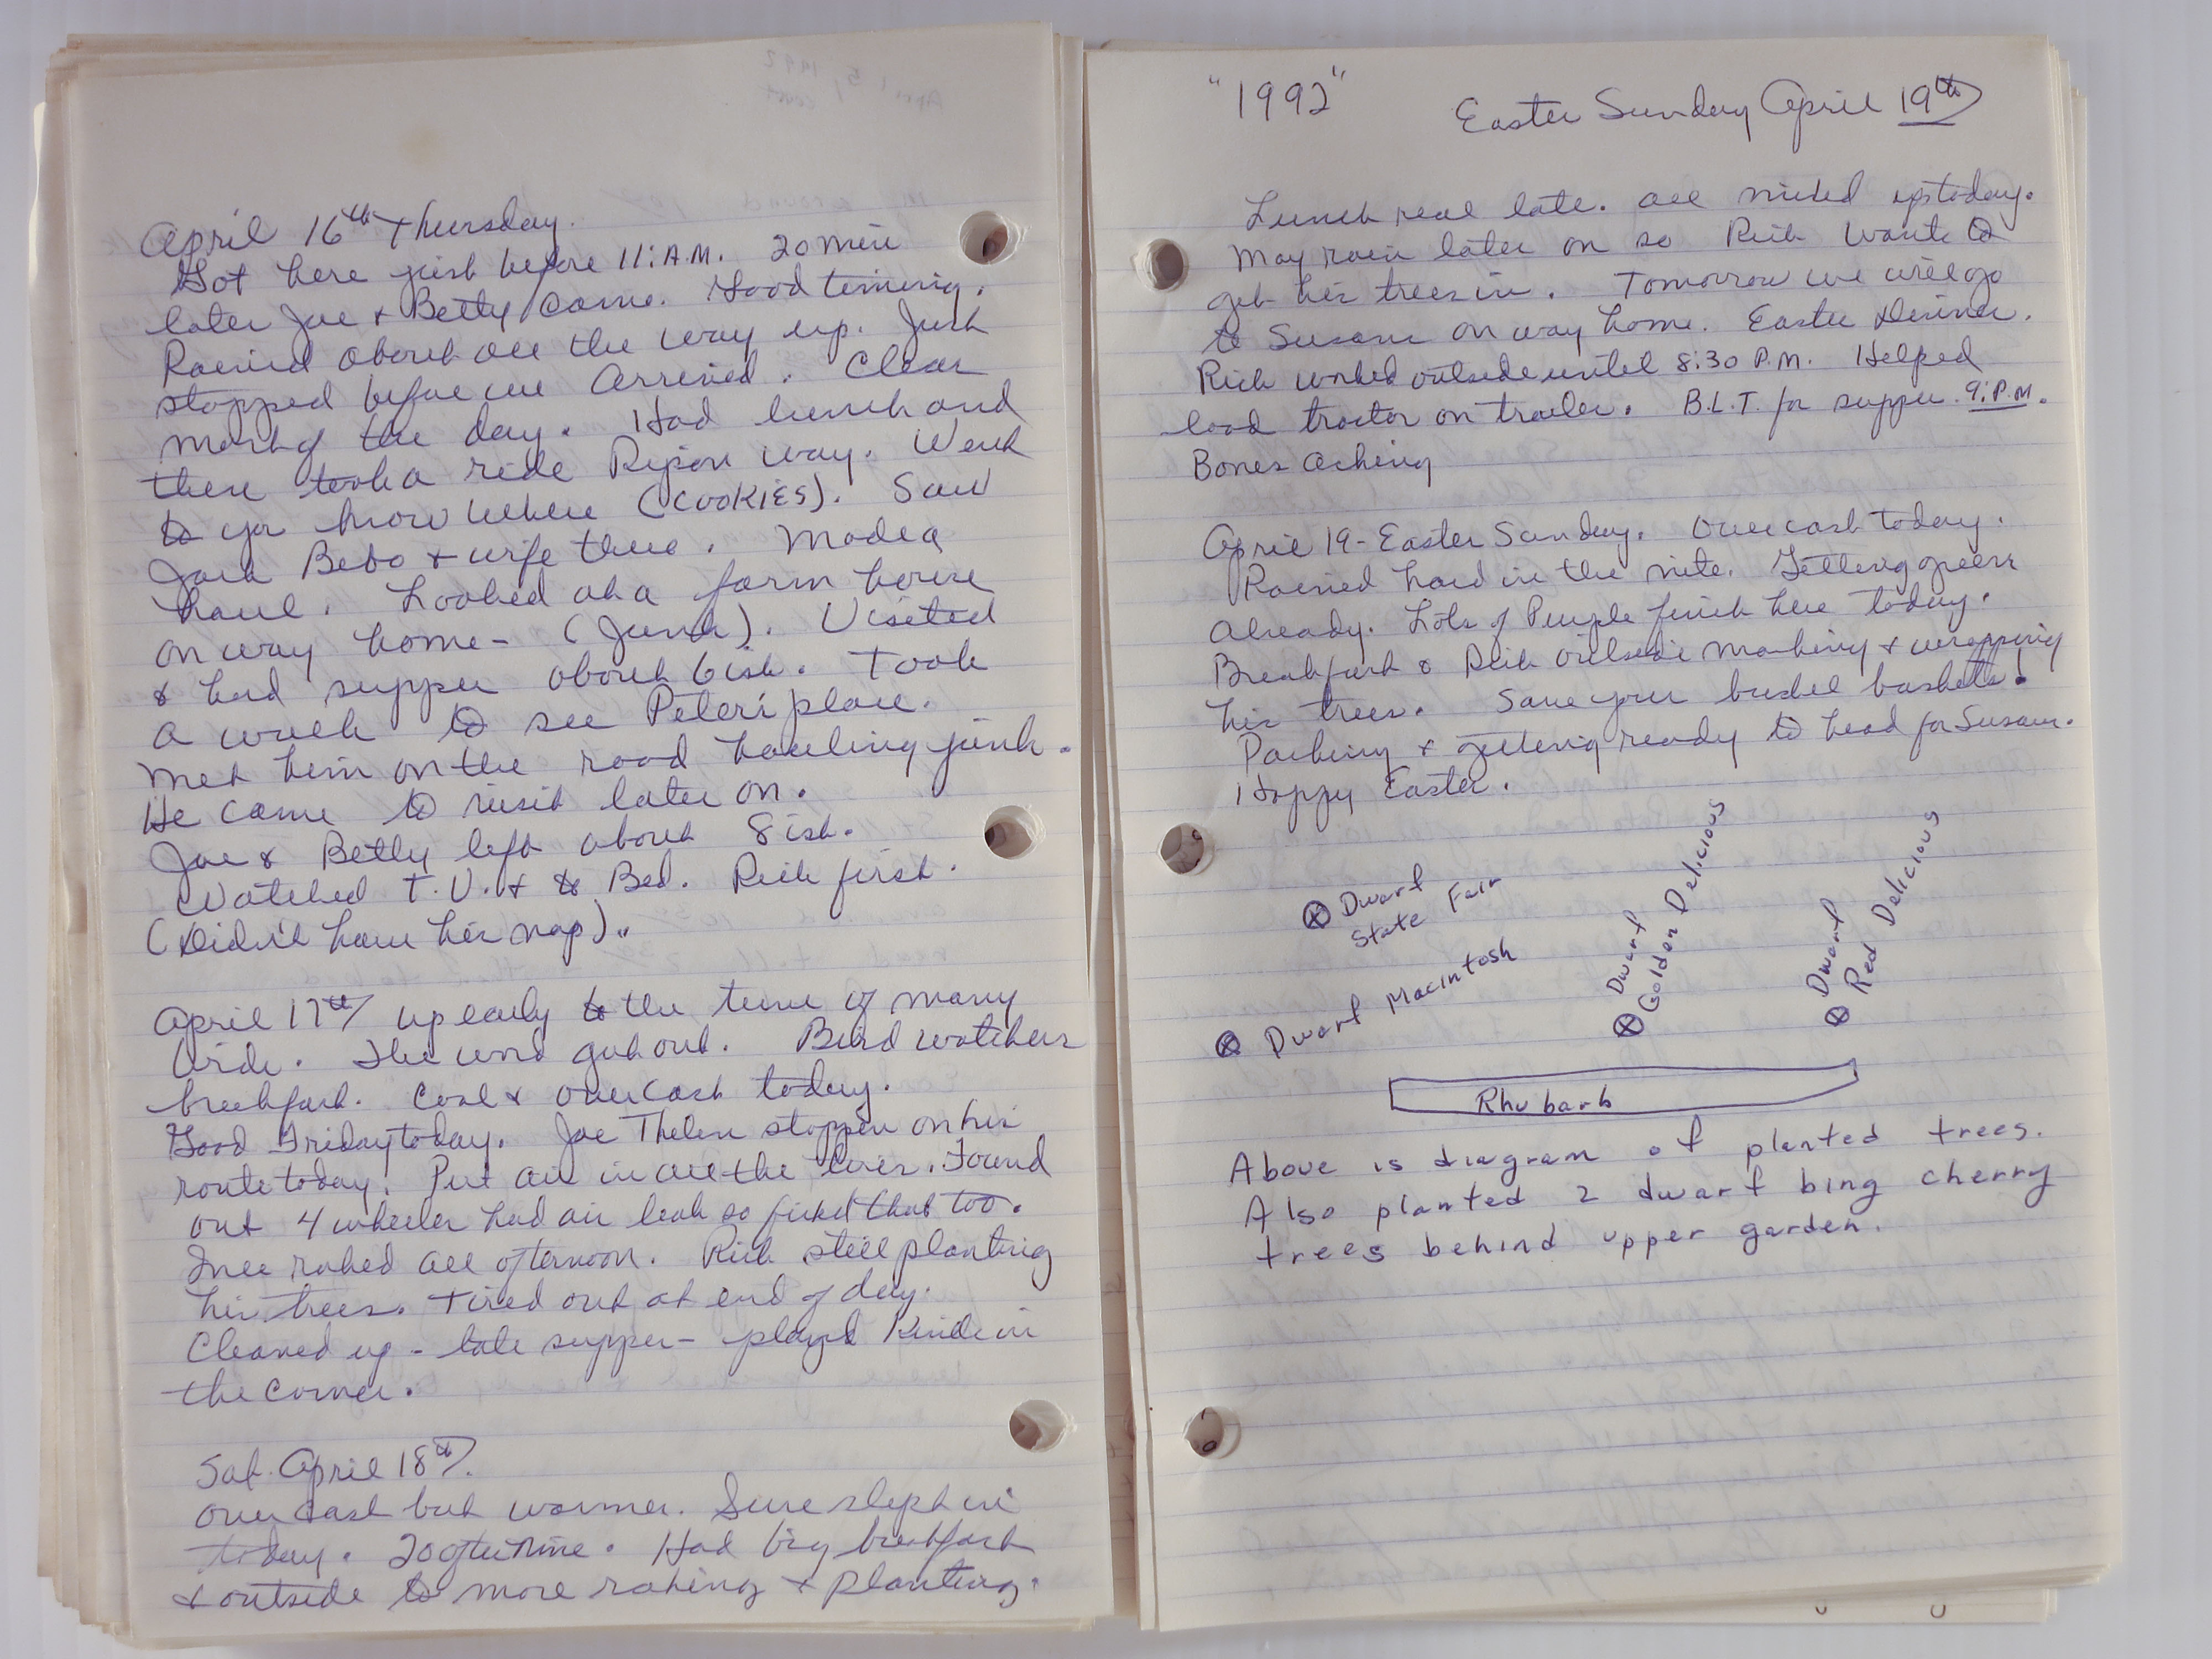 April 16th Thursday.
Got here just before 11: A.M. 20 min
later Joe & Betty came. Good timing.
Rained about all the way up. Just
stopped before we arrived. Clear
most of the day. Had lunch and
then took a ride Ripon way. Went
to you know where (COOKIES). Saw
Jack Bebo & wife there. Made a
haul. Looked at a farm house
on way home - (Junk). Visited
& had supper about 6ish. Took
a walk to see Peter's place.
Met him on the road hauling junk.
He came to visit later on.
Joe & Betty left about 8ish.
Watched T.V. & to Bed. Rich first.
(Didn't have his nap)..
April 17th up early to the tune of many
birds. The und get out. Bird watchers
breakfast. Cool & overcast today.
Good Friday today. Joe Thelen stopped on his
route today. Put air in all the tires. Found
out 4 wheeler had air leak so fixed that too.
raked all afternoon. Rich still planting
his trees. Tired out at end of day.
Cleaned up - late supper - played Kinda in
the corner.
Sat. April 18th.
overcast but warmer. Sure slept in
today. 20 after nine. Had big breakfast
& outside to more raking & planting.
"1992" Easter Sunday April 19th
Lunch real late. All mixed up today.
May rain later on so Rich wants to
get his trees in. Tomorrow we will go
to Susans on way home. Easter Dinner.
Rich worked outside until 8:30 P.M. Helped
load tractor on trailer. B.L.T. for supper. 9: P.M.
Bones Aching
April 19 - Easter Sunday. Overcast today.
Rained hard in the nite. Getting green
Already. Lots of Purple finch here today.
Breakfast & Rich outside marking & wrapping
his trees. Save your bushel baskets.
Packing & getting ready to head for Susans.
Happy Easter.
Dwarf
State Fair
Dwarf Macintosh
Dwarf
Golden Delicious
Dwarf
Red Delicious
Rhubarb
Above is diagram of planted trees.
Also planted 2 dwarf bing cherry
trees behind upper garden.